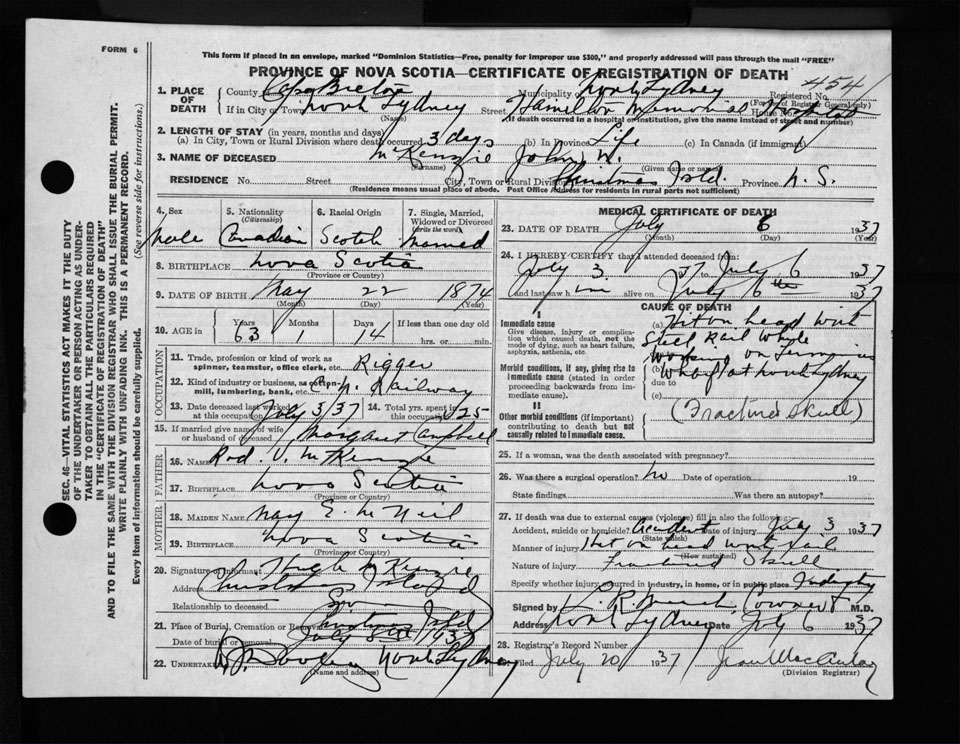 FORM 6
This form if placed in an envelope, marked "Dominion Statistics—Free, penalty for improper use $300," and properly addressed will pass through the mail "FREE"
PROVINCE OF NOVA SCOTIA—CERTIFICATE OF REGISTRATION OF DEATH
1. PLACE OF DEATH County Cape Breton Municipality of North Sydney Registered No. 454
(For use of Registrar General only)
If in City or Town North Sydney Street Hamilton Memorial Hospital House No.
(Name) (If death occurred in a hospital or institution, give the name instead of street and number)
2. LENGTH OF STAY (in years, months and days)
(a) In City, Town or Rural Division where death occurred 3 days (b) In Province Life (c) In Canada (if immigrant)
3. NAME OF DECEASED McKenzie John W.
(Surname) (Given name or names)
RESIDENCE No. Street City, Town or Rural Division Christmas Isld. Province N. S.
(Residence means usual place of abode. Post Office Address for residents in rural parts not sufficient)
4. Sex Male
5. Nationality (Citizenship) Canadian
6. Racial Origin Scotch
7. Single, Married, Widowed or Divorced (Write the word) Married
8. BIRTHPLACE Nova Scotia
(Province or Country)
9. DATE OF BIRTH May 22 1874
(Month) (Day) (Year)
10. AGE in Years 63 Months 1 Days 14 If less than one day old
hrs. or min.
OCCUPATION
11. Trade, profession or kind of work as spinner, teamster, office clerk, etc. Rigger
12. Kind of industry or business, as cotton mill, lumbering, bank, etc. C. N. Railway
13. Date deceased last worked at this occupation July 3/37 14. Total yrs. spent in this occupation 25
15. If married give name of wife or husband of deceased Margaret Campbell
FATHER
16. NAME Rod. J. McKenzie
17. BIRTHPLACE Nova Scotia
(Province or Country)
MOTHER
18. MAIDEN NAME Mary E. McNeil
19. BIRTHPLACE Nova Scotia
(Province or Country)
20. Signature of Informant Hugh McKenzie
Address Christmas Island
Relationship to deceased Son
21. Place of Burial, Cremation or Removal Christmas Isld
Date of burial or removal July 8th 1937
22. UNDERTAKER North Sydney
(Name and address)
MEDICAL CERTIFICATE OF DEATH
23. DATE OF DEATH July 6 1937
(Month) (Day) (Year)
24. I HEREBY CERTIFY that I attended deceased from:
July 3 37 to July 6 1937
and last saw him alive on July 6th 1937
CAUSE OF DEATH
I
Immediate cause
Give disease, injury or complication which caused death, not the mode of dying, such as heart failure, asphyxia, asthenia, etc.
(a) Hit on head with steel rail while working on Terminus wharf at North Sydney
Morbid conditions, if any, giving rise to immediate cause (stated in order proceeding backwards from immediate cause).
(b)
due to
(c)
(Fractured skull)
II
Other morbid conditions (if important) contributing to death but not causally related to immediate cause.
25. If a woman, was the death associated with pregnancy?
26. Was there a surgical operation? No Date of operation 19
State findings Was there an autopsy?
27. If death was due to external causes (violence) fill in also the following:
Accident, suicide or homicide? Accident Date of injury July 3 1937
(State which)
Manner of injury Hit on head with rail
(How sustained)
Nature of injury Fractured Skull
Specify whether injury occurred in industry, in home, or in public place Industry
Signed by Coroner M.D.
Address North Sydney Date July 6 1937
28. Registrar's Record Number
Filed July 20 1937 Jean MacAulay
(Division Registrar)
SEC. 46—VITAL STATISTICS ACT MAKES IT THE DUTY
OF THE UNDERTAKER OR PERSON ACTING AS UNDERTAKER TO OBTAIN ALL THE PARTICULARS REQUIRED
IN THE "CERTIFICATE OF REGISTRATION OF DEATH"
AND TO FILE THE SAME WITH THE DIVISION REGISTRAR WHO SHALL ISSUE THE BURIAL PERMIT.
WRITE PLAINLY WITH UNFADING INK. THIS IS A PERMANENT RECORD.
Every item of information should be carefully supplied. (See reverse side for instructions.)